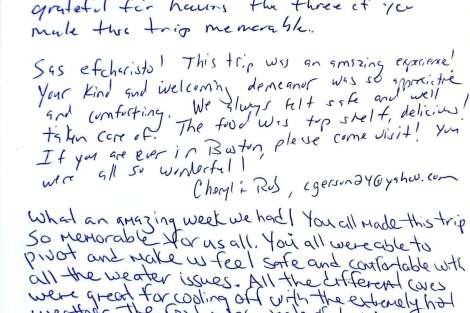 grateful for having the three of you
made this trip memorable.
Sas efcharisto! This trip was an amazing experience!
Your kind and welcoming demeanor was so appreciative
and comforting. We always felt safe and well
taken care of. The food was top shelf, delicious!
If you are ever in Boston, please come visit! You
were all so wonderful!
Cheryl & Rob, cgerson24@yahoo.com
What an amazing week we had! You all made this trip
so memorable for us all. You all were able to
pivot and make us feel safe and comfortable with
all the weater issues. All the different coves
were great for cooling off with the extremely hot